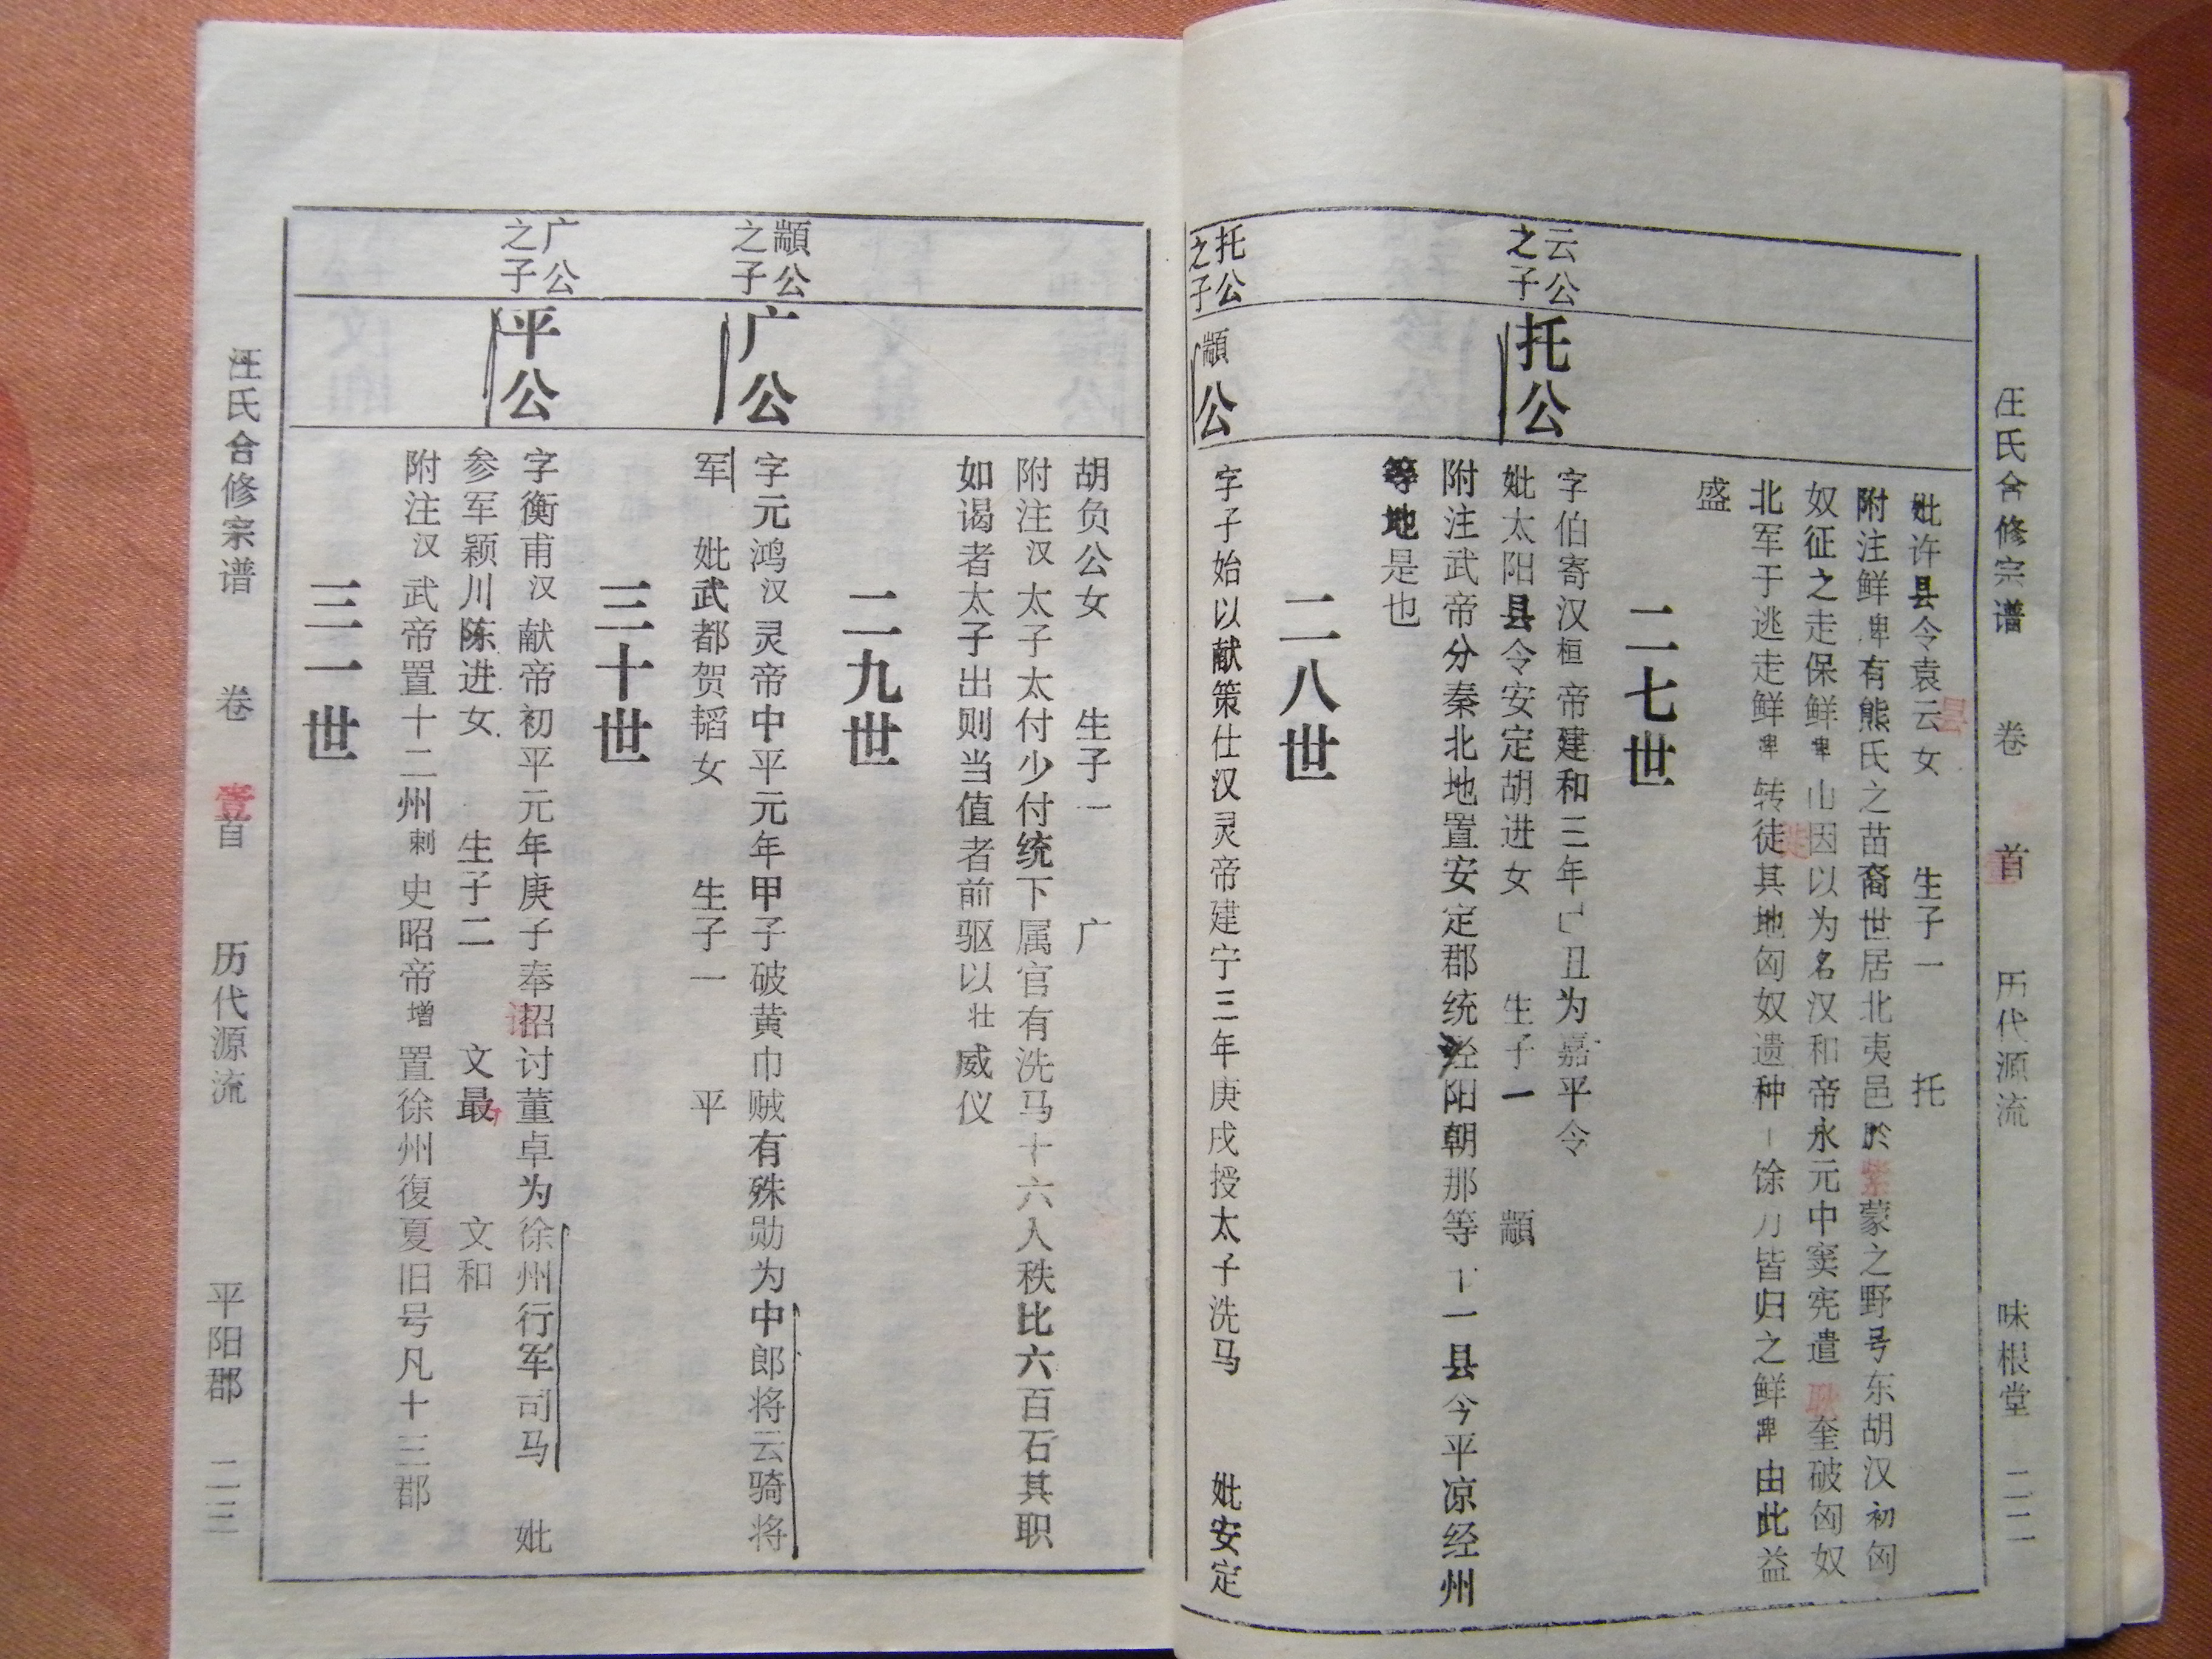 汪氏合修宗谱 卷 首 历代源流 味根堂 二二
妣许县令袁云女 生子一 托
附注鲜卑有熊氏之苗裔世居北夷邑於紫蒙之野号东胡汉初匈
奴征之走保鲜卑山因以为名汉和帝永元中窦宪遣耿夔破匈奴
北军于逃走鲜卑转徒其地匈奴遗种十馀万皆归之鲜卑由此益
盛
二七世
云公
之子
托公
字伯寄汉桓帝建和三年己丑为嘉平令
妣太阳县令安定胡进女 生子一 顓
附注武帝分秦北地置安定郡统经阳朝那等十一县今平凉经州
等地是也
二八世
托公
之子
顓公
字子始以献策仕汉灵帝建宁三年庚戌授太子洗马 妣安定
胡负公女 生子一 广
附注汉太子太付少付统下属官有洗马十六人秩比六百石其职
如谒者太子出则当值者前驱以壮威仪
二九世
顓公
之子
广公
字元鸿汉灵帝中平元年甲子破黄巾贼有殊勋为中郎将云骑将
军 妣武都贺韬女 生子一 平
三十世
广公
之子
平公
字衡甫汉献帝初平元年庚子奉招讨董卓为徐州行军司马 妣
参军颖川陈进女 生子二 文最 文和
附注汉武帝置十二州刺史昭帝增置徐州復夏旧号凡十三郡
三一世
汪氏合修宗谱 卷 壹 首 历代源流 平阳郡 二三